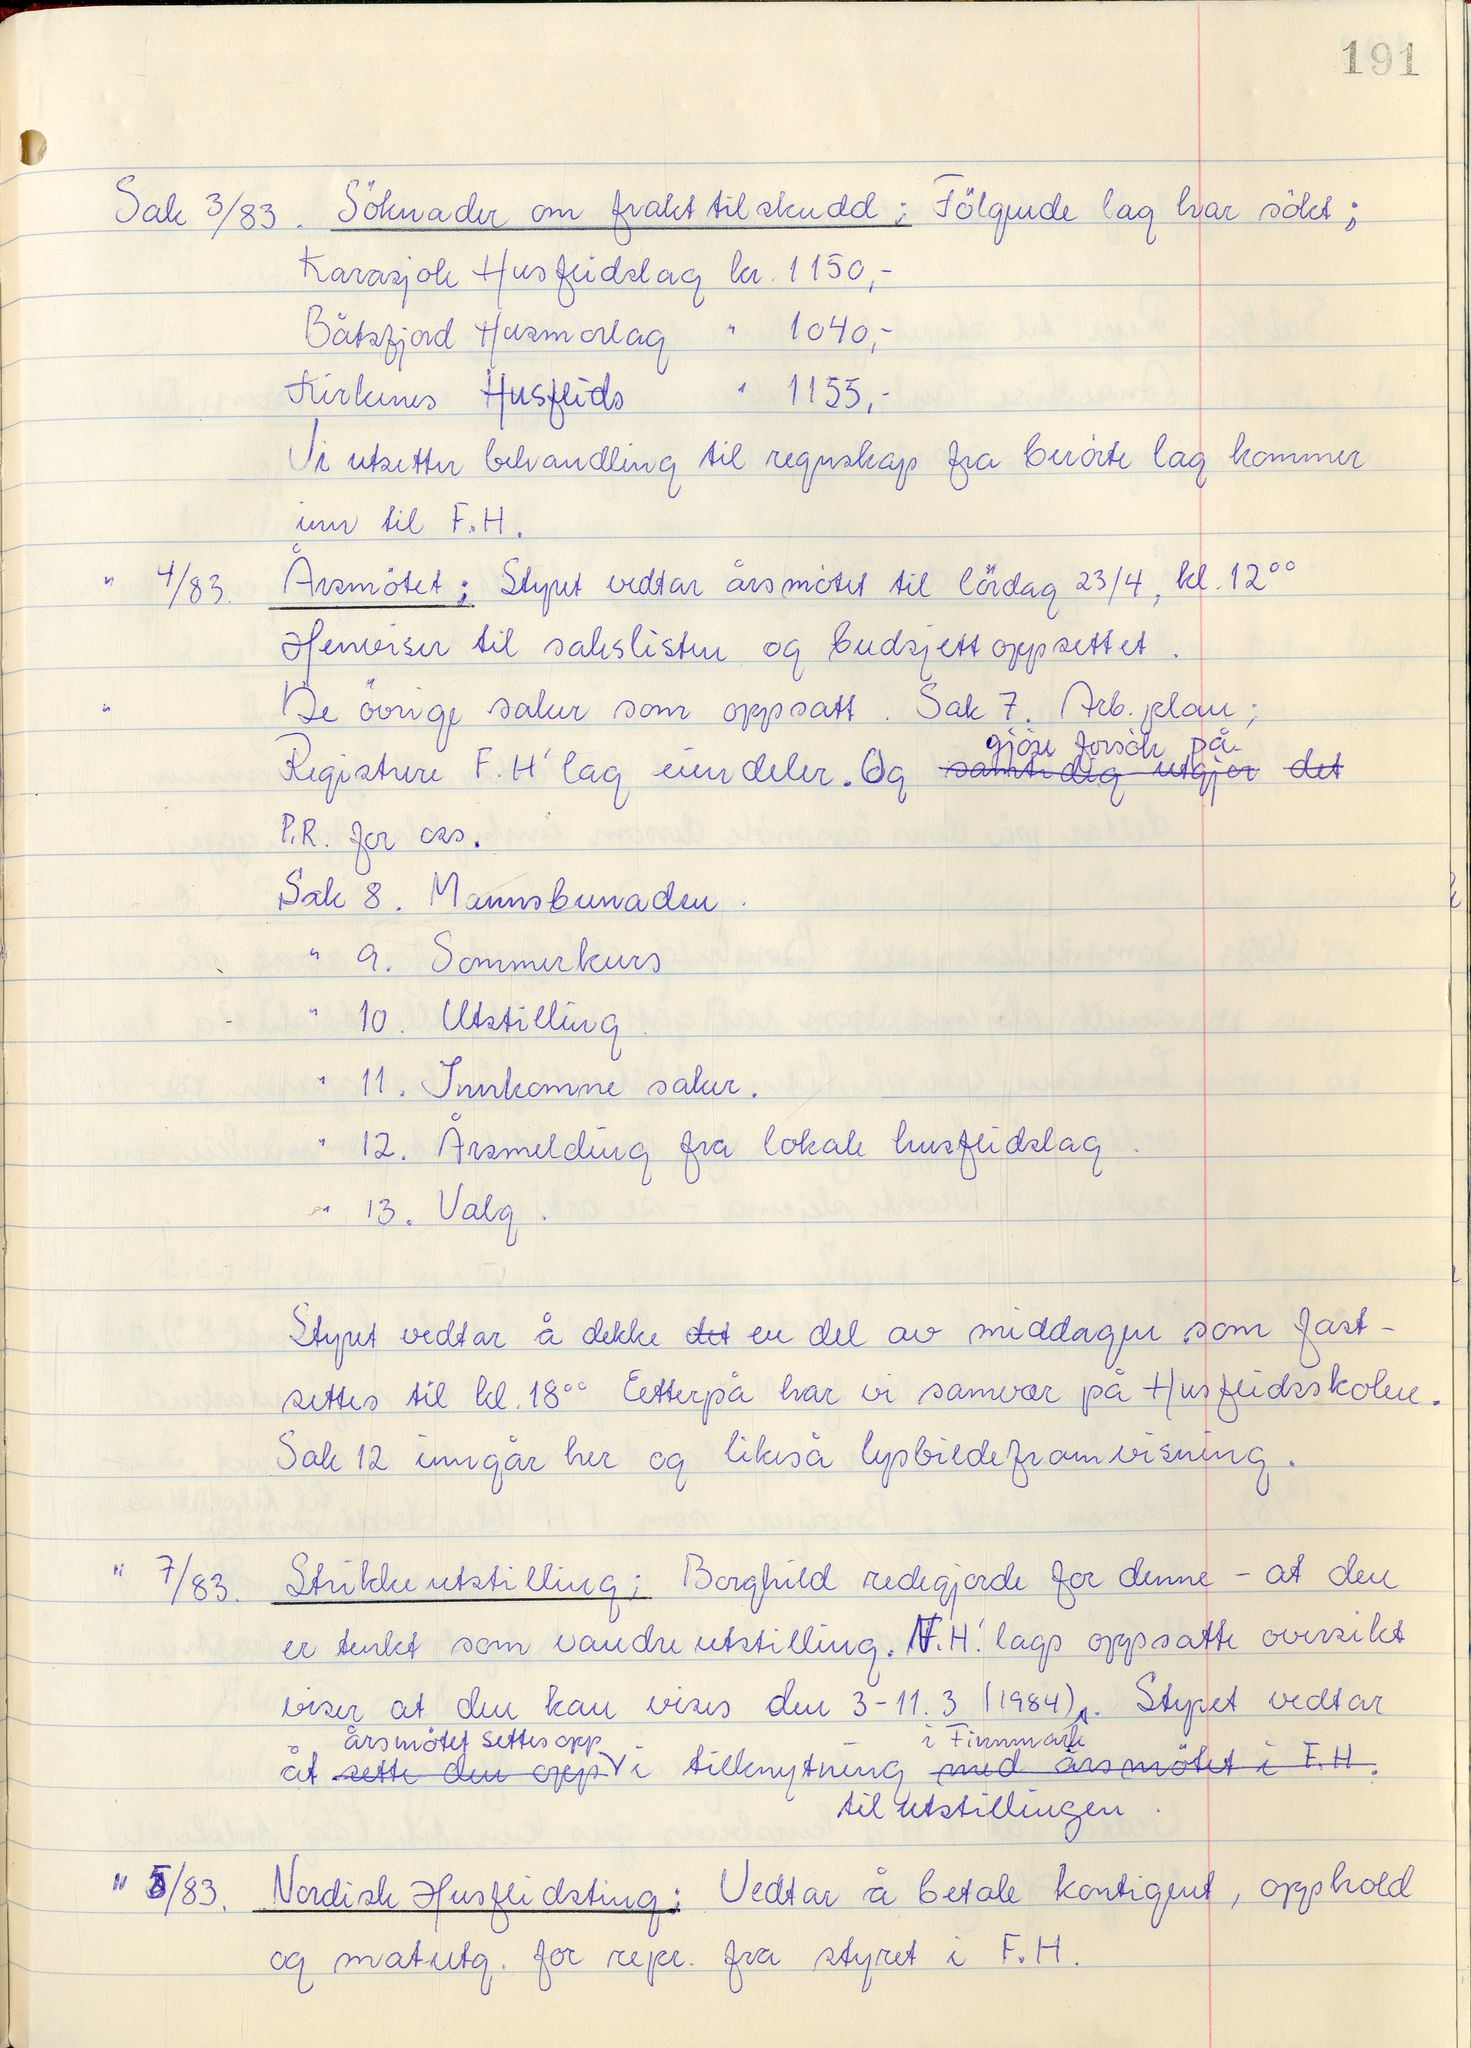 191
Sak 3/83. Söknader om frakttilskudd; Fölgende lag har sökt;
Karasjok Husflidslag kr. 1150,-
Båtsfjord Husmorlag " 1040,-
Kirkenes Husflids " 1155,-
Vi utsetter behandling til regnskap fra berörte lag kommer
inn til F.H.
" 4/83. Årsmötet; Styret vedtar årsmötet til lördag 23/4, kl. 12⁰⁰
Henviser til sakslisten og budsjettoppsettet.
" De övrige saker som oppsatt. Sak 7. Arb.plan;
gjöre forsök på
Registrere F.H' lag eiendeler. Og samtidig utgjør det
P.R. for oss.
Sak 8. Mannsbunaden.
" 9. Sommerkurs
" 10. Utstilling.
" 11. Innkomne saker.
" 12. Årsmelding fra lokale husflidslag.
" 13. Valg.
Styret vedtar å dekke det en del av middagen som fast-
settes til kl. 18⁰⁰ Eetterpå har vi samvær på Husflidsskolen.
Sak 12 inngår her og likeså lysbildeframvisning.
" 7/83. Strikkeutstilling; Borghild redegjorde for denne - at den
er tenkt som vandreutstilling. N.H.' lags oppsatte oversikt
viser at den kan vises den 3-11.3 (1984). Styret vedtar
årsmötet settes opp i Finnmark
at sette den opp i tilknytning med årsmötet i F.H.
til utstillingen.
" 5/83. Nordisk Husflidsting; Vedtar å betale kontigent, opphold
og matutg. for repr. fra styret i F.H.